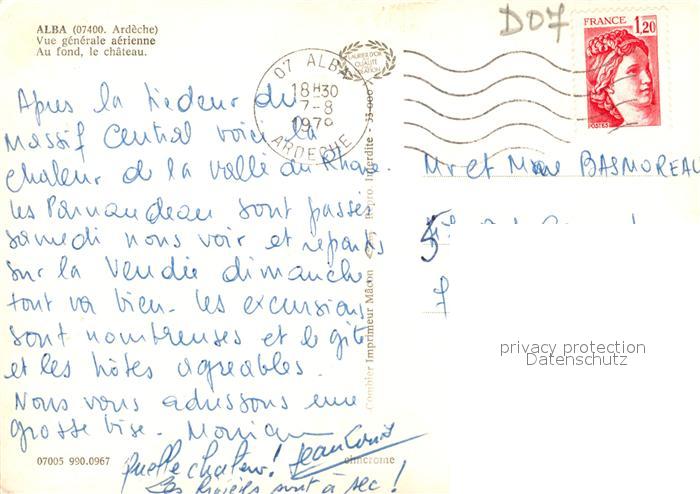 ALBA (07400. Ardèche)
Vue générale aérienne
Au fond, le château.
D07
FRANCE
1,20
POSTES
07 ALBA
18H30
7-8
1979
ARDECHE
Après la tiédeur du
Massif Central voici la
chaleur de la vallée du Rhône.
Les sont passés
samedi nous voir et repartis
sur la Vendée dimanche
tout va bien. Les excursions
sont nombreuses et le gîte
et les hôtes agréables.
Nous vous adressons une
grosse bise. Monique
Quelle chaleur! Jean Louis
Les rivières sont à sec!
07005 990.0967
Combier Imprimeur Mâcon
Mr et Mme BASMOREAU
5
7
privacy protection
Datenschutz